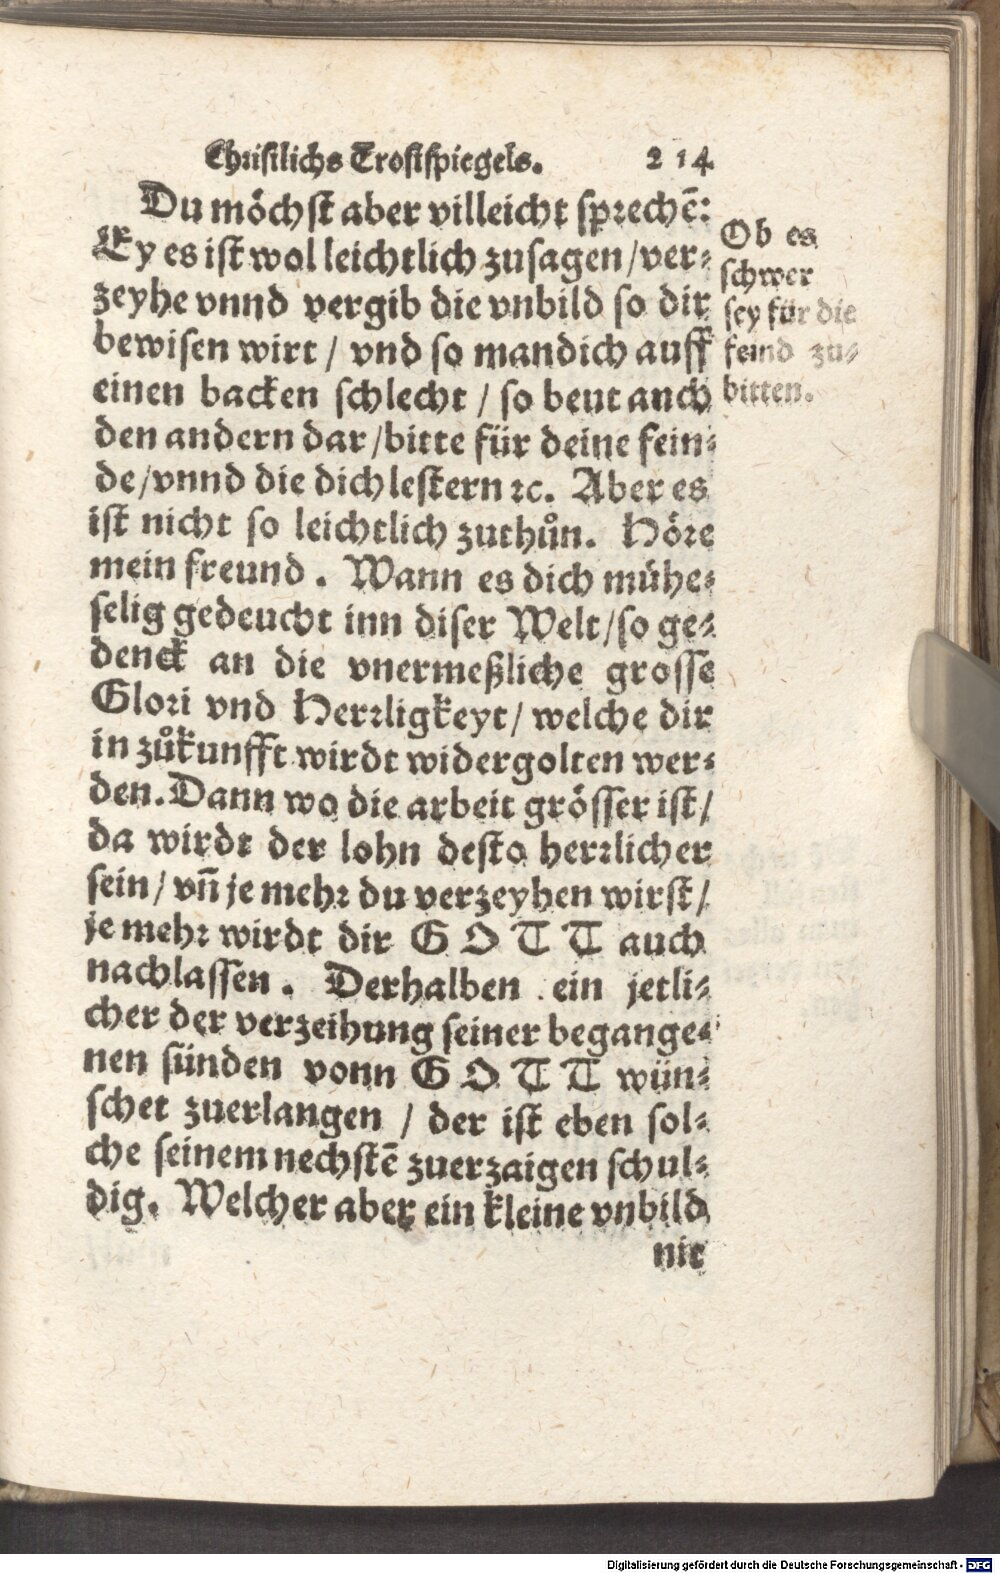 Christlichs Trostspiegels. 214
Du möchst aber villeicht sprechē:
Ey es ist wol leichtlich zusagen/ver⸗
zeyhe vnnd vergib die vnbild so dir
bewisen wirt / vnd so mandich auff
einen backen schlecht / so beut auch
den andern dar/bitte für deine fein⸗
de/vnnd die dich lestern ꝛc. Aber es
ist nicht so leichtlich zuthůn. Höre
mein freund. Wann es dich mühe⸗
selig gedeucht inn diser Welt/so ge⸗
denck an die vnermeßliche grosse
Glori vnd Herrligkeyt/ welche dir
in zůkunfft wirdt widergolten wer⸗
den. Dann wo die arbeit grösser ist/
da wirdt der lohn desto herrlicher
sein/ vñ je mehr du verzeyhen wirst/
je mehr wirdt dir GOTT auch
nachlassen. Derhalben ein jetli⸗
cher der verzeihung seiner begange⸗
nen sünden vonn GOTT wün⸗
schet zuerlangen / der ist eben sol⸗
che seinem nechstē zuerzaigen schul⸗
dig. Welcher aber ein kleine vnbild
nit
Ob es
schwer
sey für die
feind zu⸗
bitten.
Digitalisierung gefördert durch die Deutsche Forschungsgemeinschaft - DFG